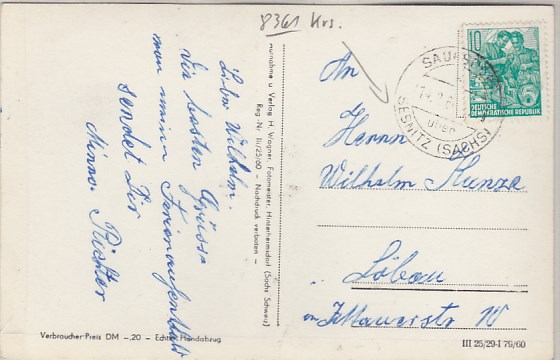 8361 Krs.
Lieber Wilhelm.
Die besten Grüsse
von meinem Ferienaufenthalt
sendet Dir
Minna Richter
Aufnahme u Verlag H Wagner, Fotomeister, Hinterhermsdorf (Sächs Schweiz)
Reg.-Nr III/25/60 – Nachdruck verboten –
An
Herrn
Wilhelm Kunze
Löbau
Zittauerstr
10
DEUTSCHE
DEMOKRATISCHE REPUBLIK
über
SEBNITZ (SACHS)
Verbraucher-Preis DM –,20 – Echter Handabzug
III 25/29-I 79/60